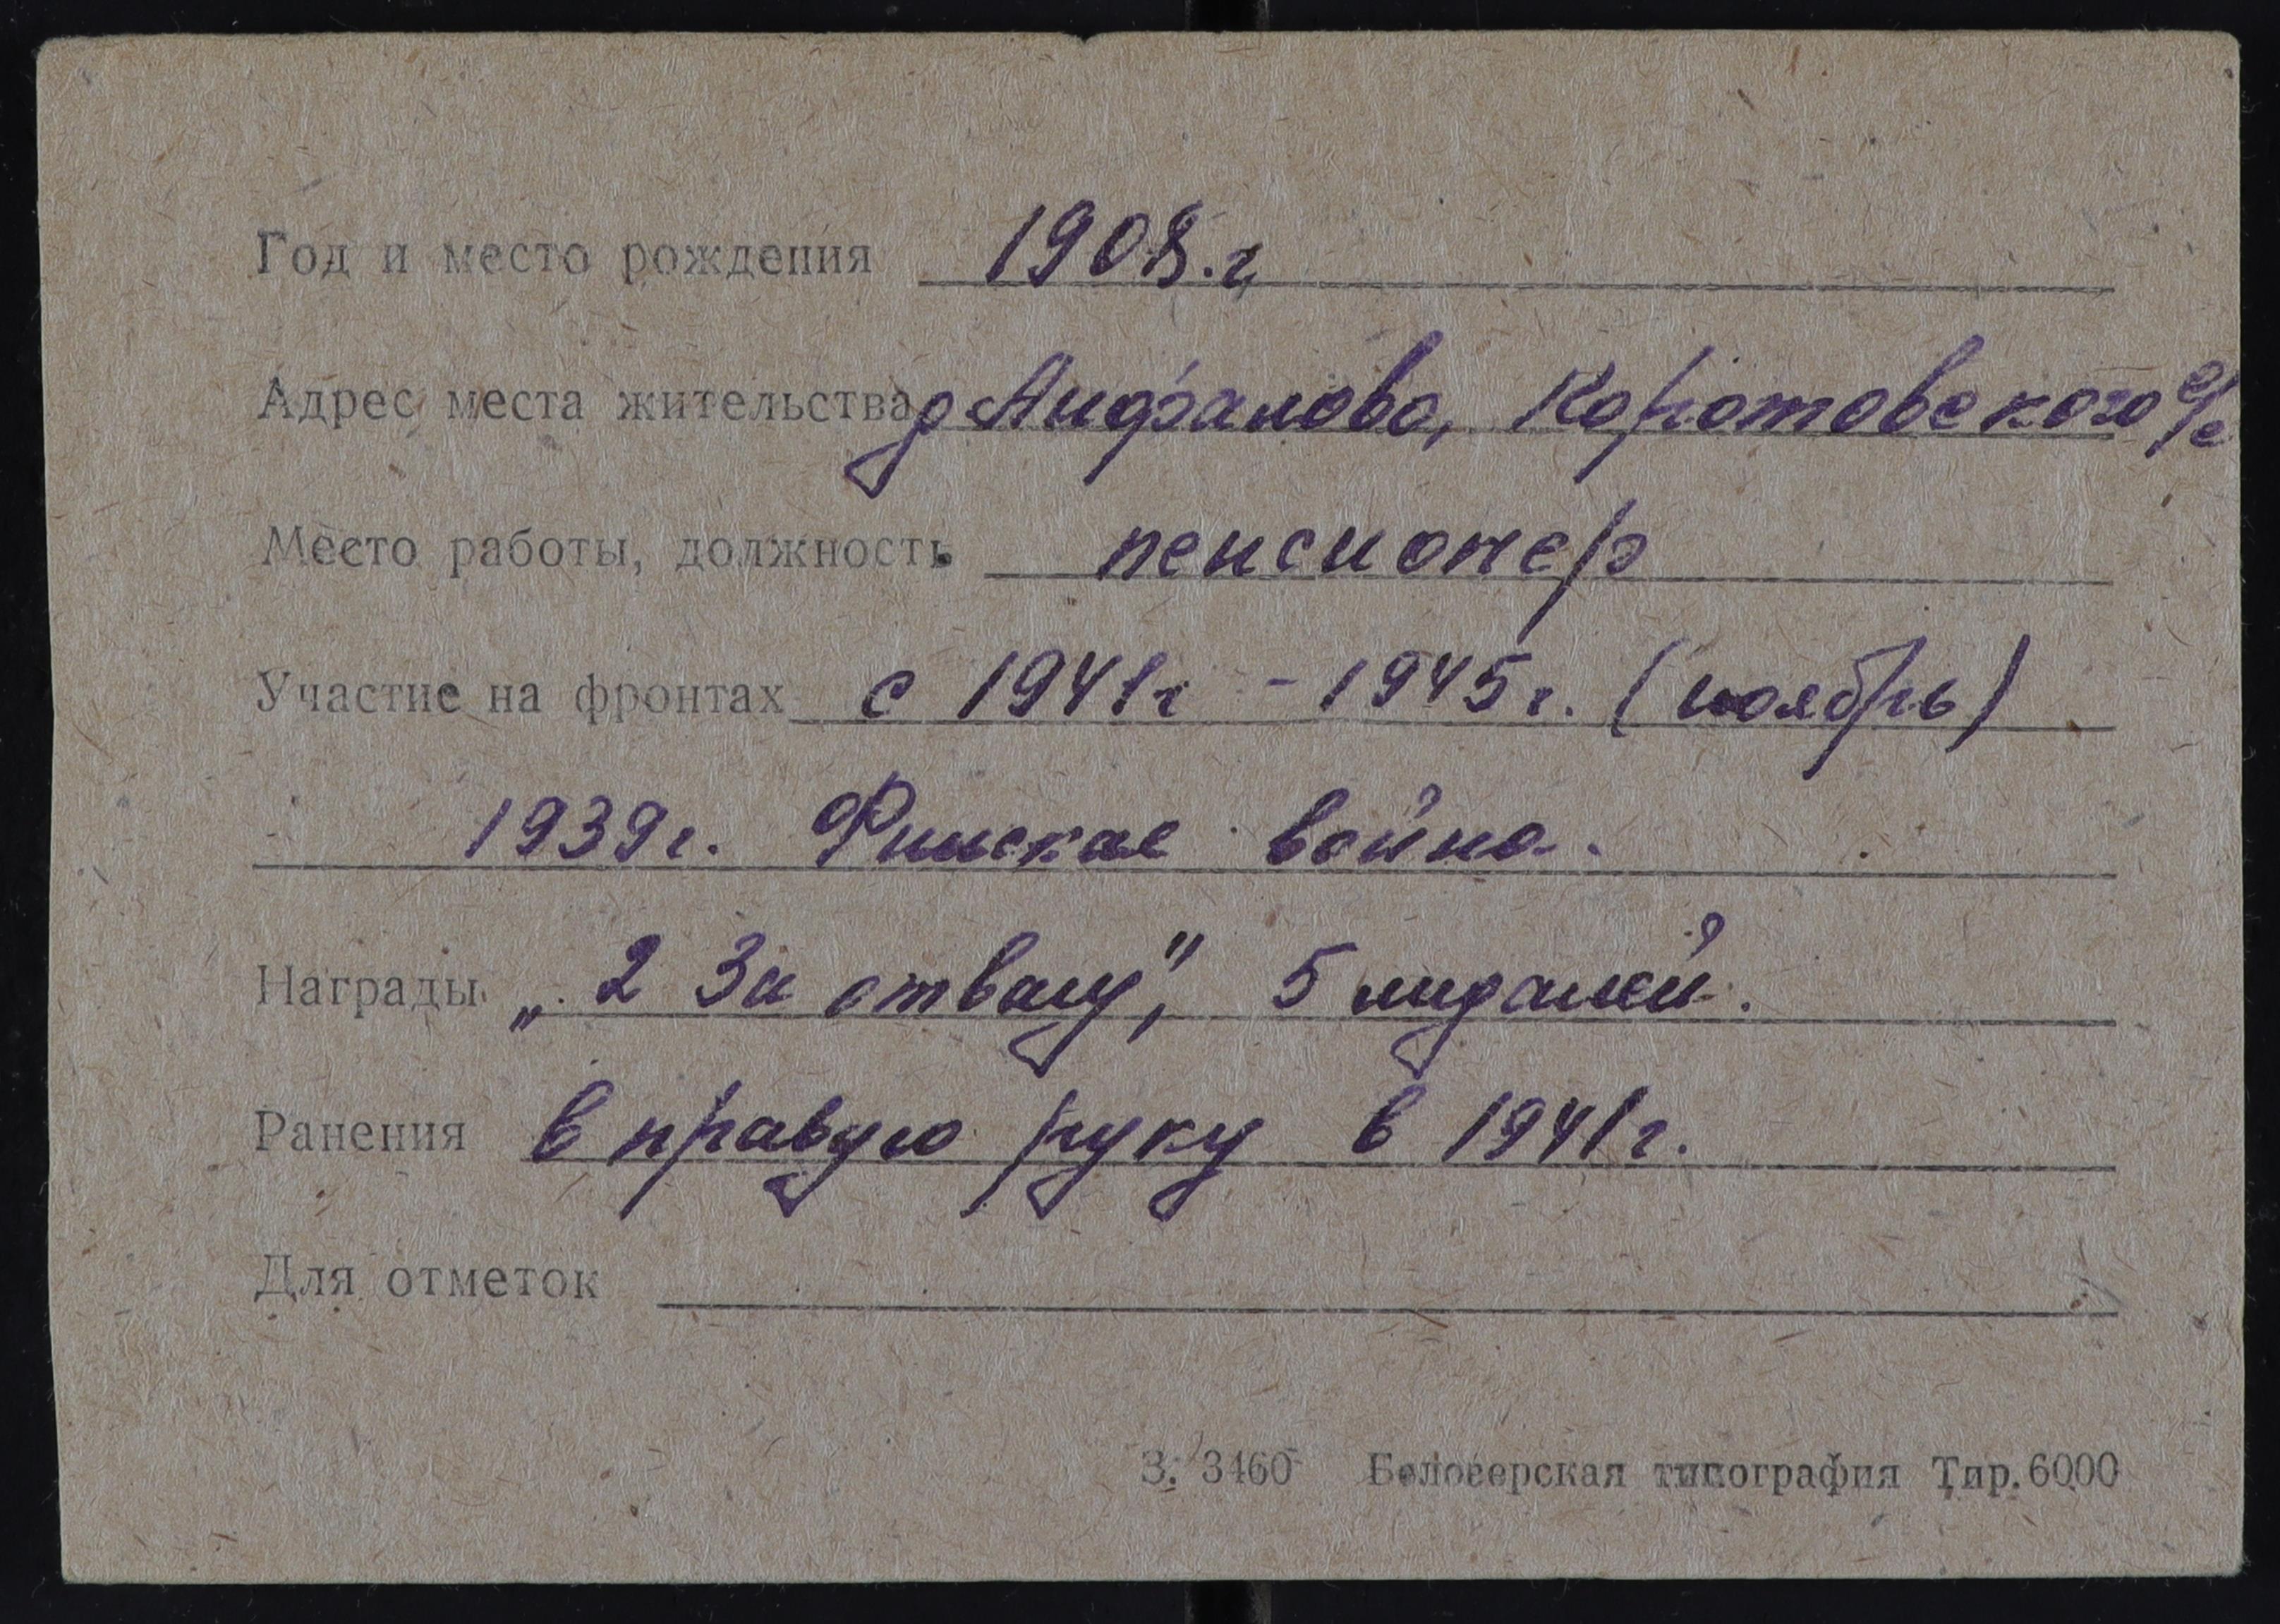 Год и место рождения 1908.г
Адрес места жительства д Анфалово, Коротовского с/с
Место работы, должность пенсионер
Участие на фронтах с 1941г - 1945г. (ноябрь)
1939г. Финская война.
Награды „2 За отвагу", 5 мидалей.
Ранения в правую руку в 1941г.
Для отметок
З. 3460 Белозерская типография Тир. 6000